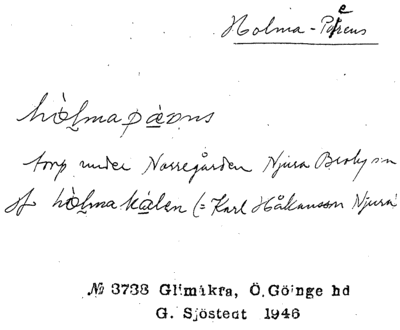 Holma-Péreus
hòlmapä̀rəns
torp under Norregården Njura Broby sn
jf hòlmakálen (= Karl Håkansson Njura
№ 3738 Glimåkra, Ö. Göinge hd
G. Sjöstedt 1946